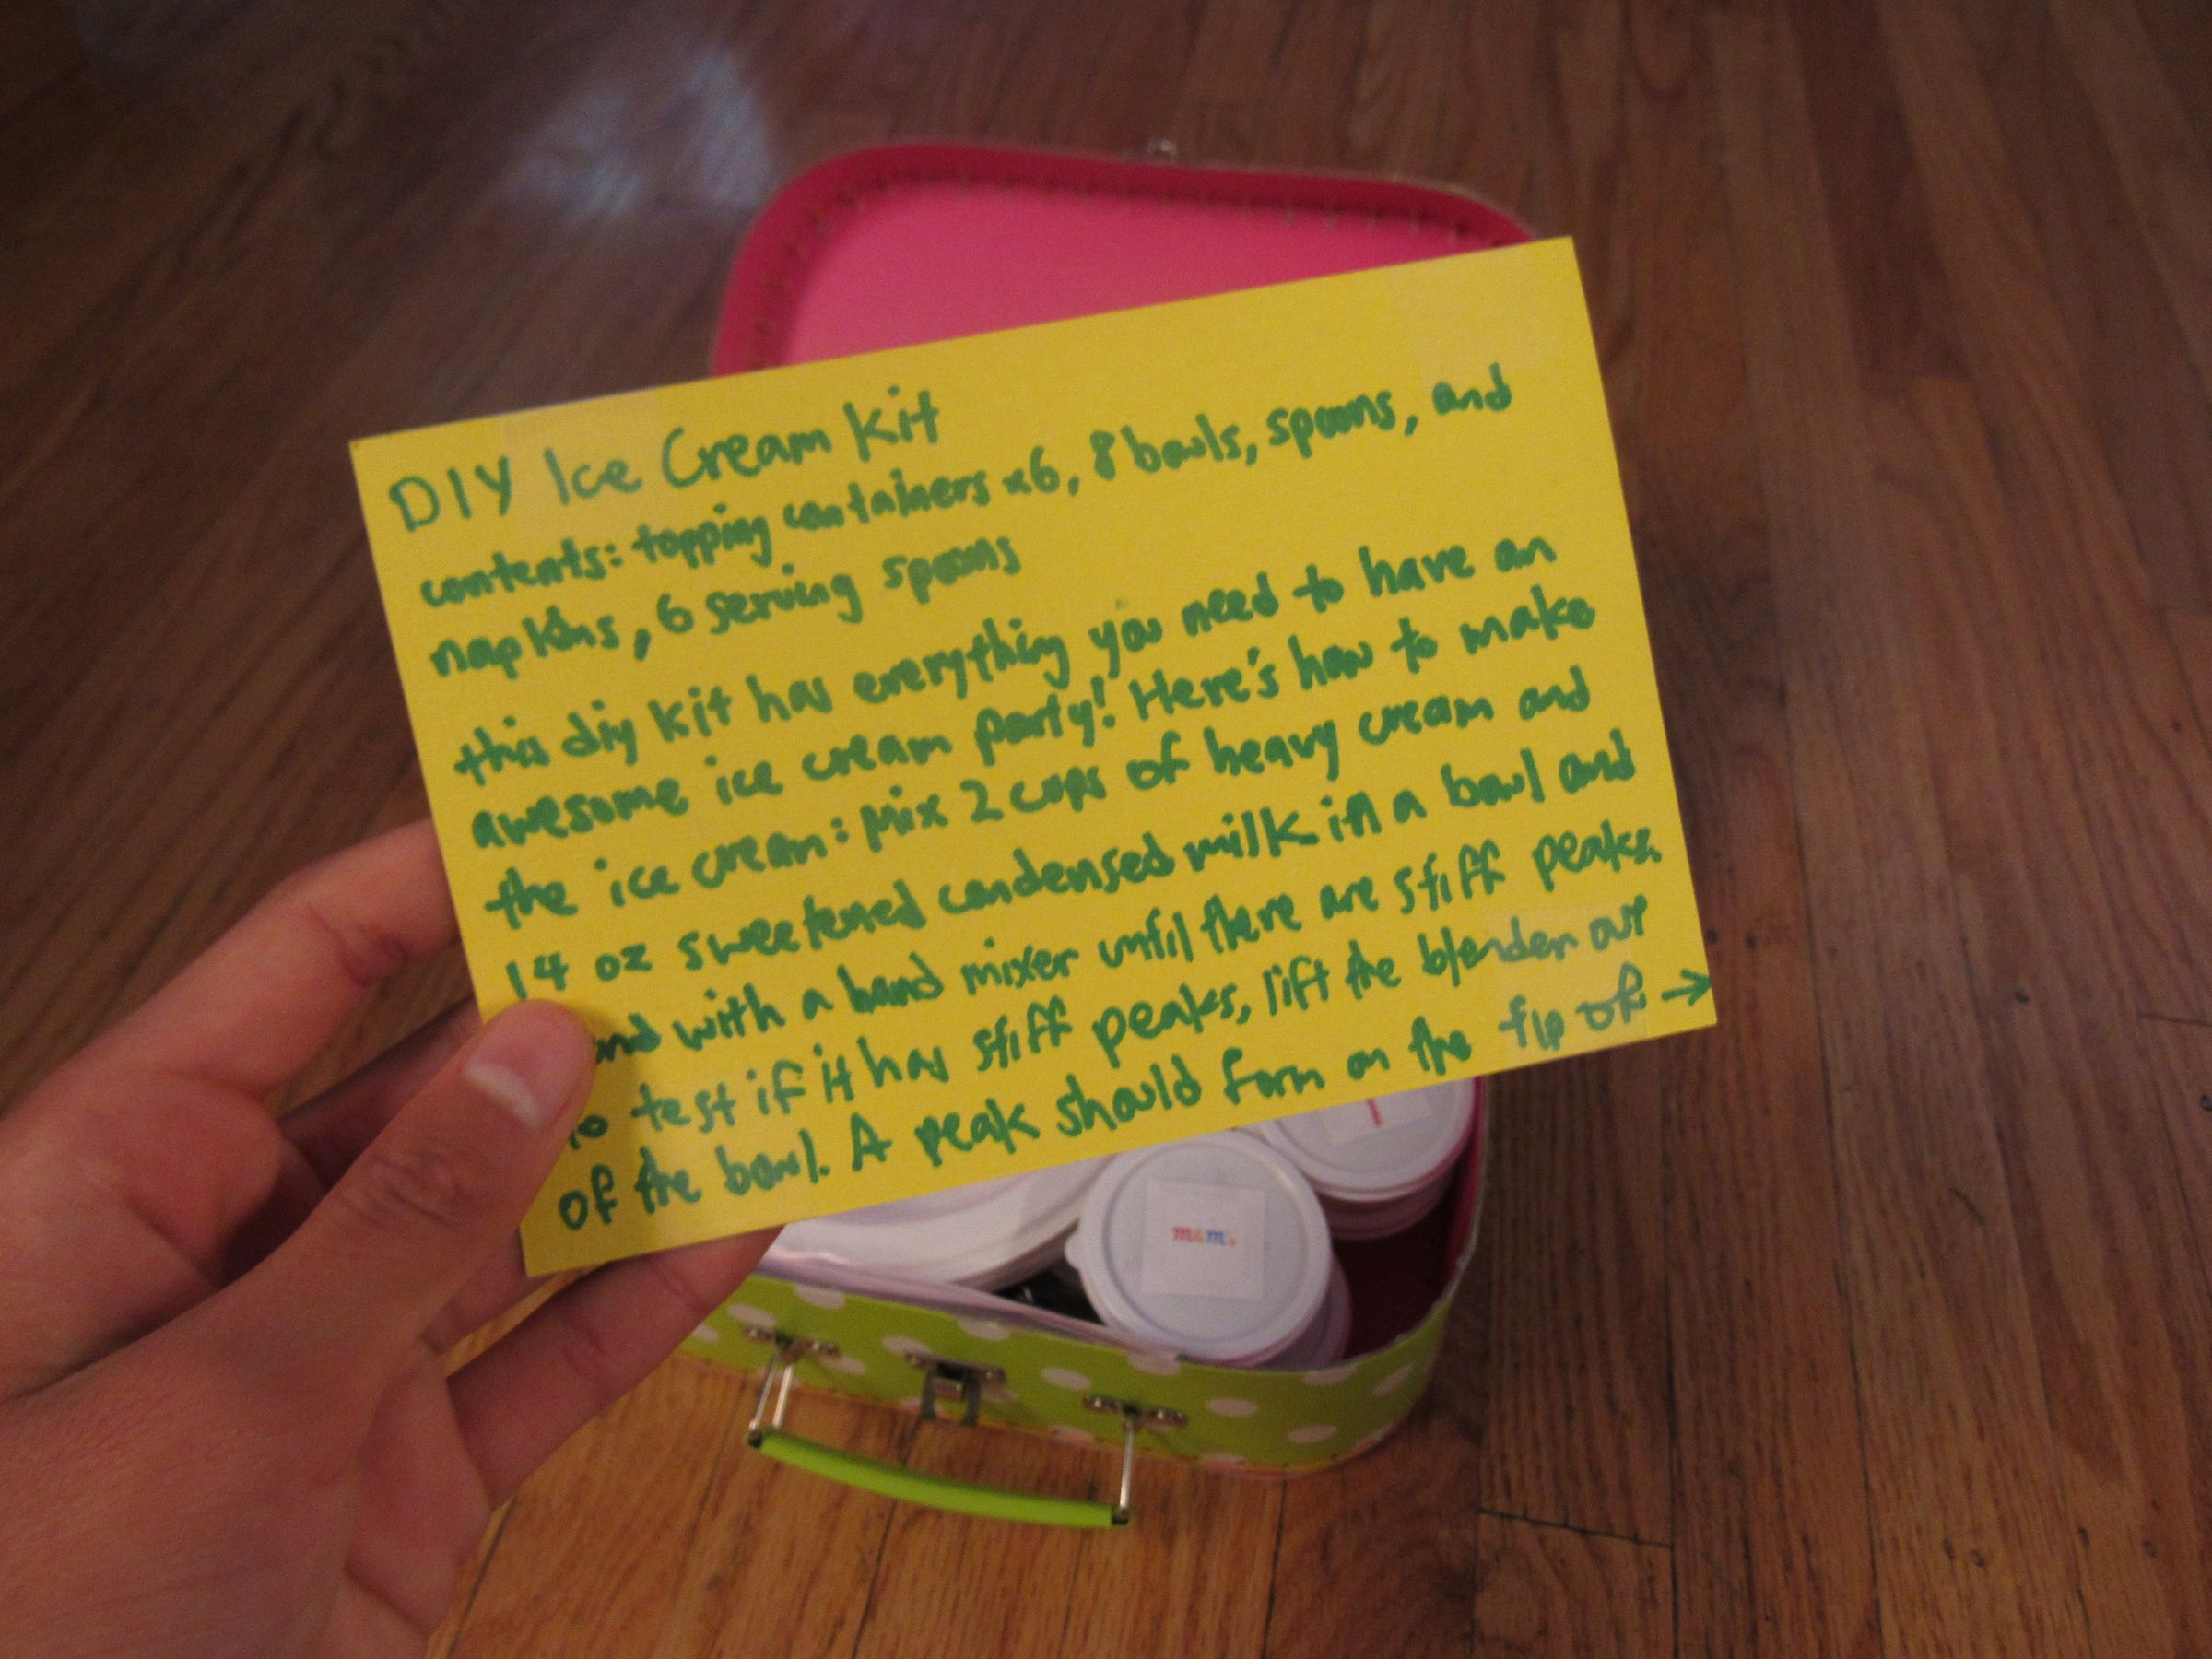 DIY Ice Cream Kit
contents: topping containers x6, 8 bowls, spoons, and
napkins, 6 serving spoons
this diy kit has everything you need to have an
awesome ice cream party! Here's how to make
the ice cream: mix 2 cups of heavy cream and
14 oz sweetened condensed milk in a bowl and
with a hand mixer until there are stiff peaks.
To test if it has stiff peaks, lift the blender out
of the bowl. A peak should form on the tip of →
m&m's